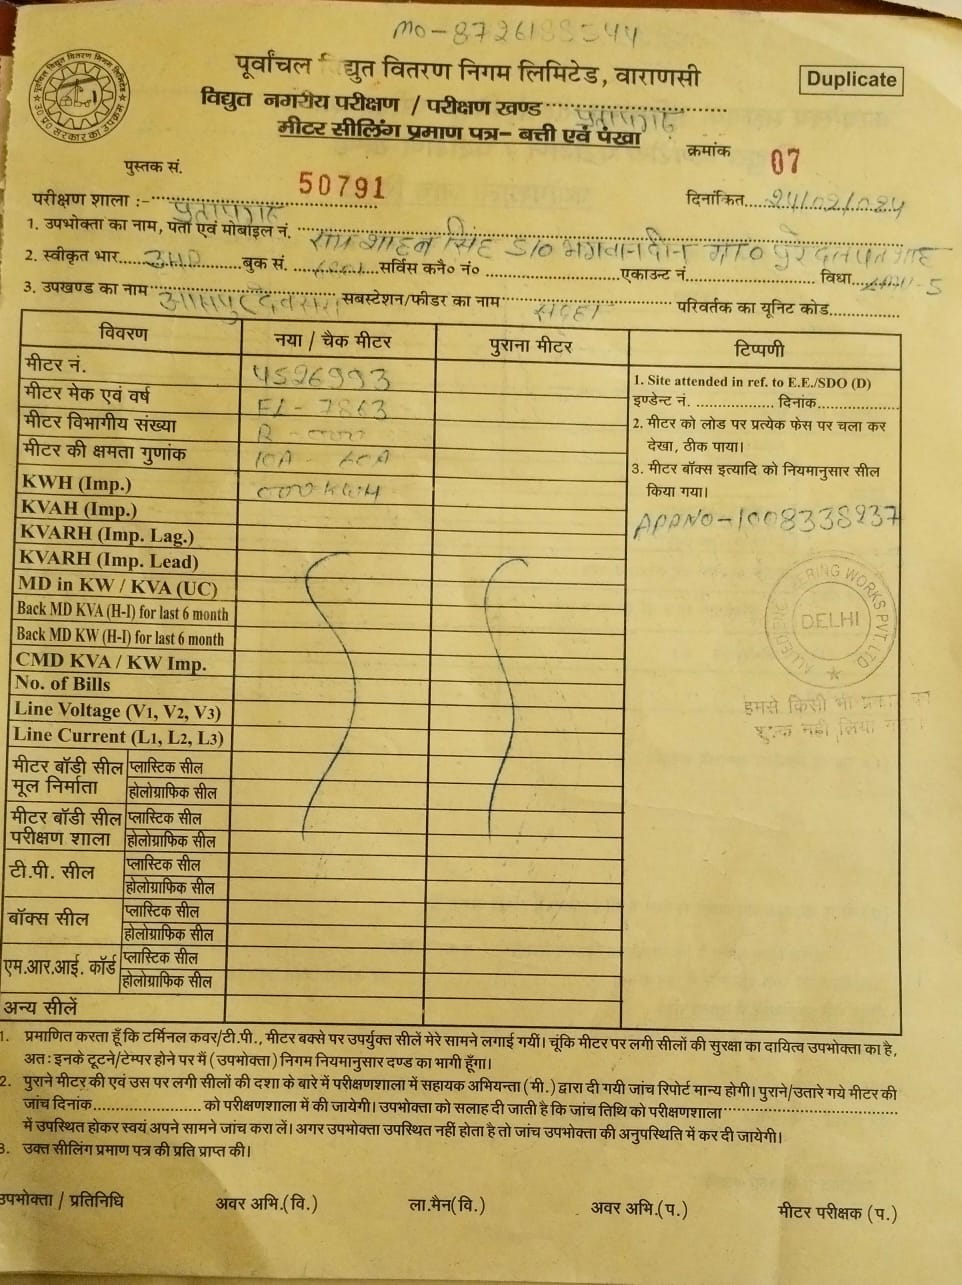 MO-8726188544
पूर्वांचल विद्युत वितरण निगम लिमिटेड, वाराणसी
Duplicate
विद्युत नगरीय परीक्षण / परीक्षण खण्ड
मीटर सीलिंग प्रमाण पत्र- बत्ती एवं पंखा
क्रमांक 07
पुस्तक सं. 50791
परीक्षण शाला :-
दिनांकित
1. उपभोक्ता का नाम, पता एवं मोबाइल नं. सिंह S/O भगवानदीन
2. स्वीकृत भार बुक सं. सर्विस कनै० नं० एकाउन्ट नं. विधा
3. उपखण्ड का नाम सबस्टेशन/फीडर का नाम परिवर्तक का यूनिट कोड
विवरण नया / चैक मीटर पुराना मीटर टिप्पणी
मीटर नं. 4526993
मीटर मेक एवं वर्ष
मीटर विभागीय संख्या
मीटर की क्षमता गुणांक 10A - 60A
KWH (Imp.) 000 KWH
KVAH (Imp.)
KVARH (Imp. Lag.)
KVARH (Imp. Lead)
MD in KW / KVA (UC)
Back MD KVA (H-I) for last 6 month
Back MD KW (H-I) for last 6 month
CMD KVA / KW Imp.
No. of Bills
Line Voltage (V1, V2, V3)
Line Current (L1, L2, L3)
मीटर बॉडी सील मूल निर्माता प्लास्टिक सील
होलोग्राफिक सील
मीटर बॉडी सील परीक्षण शाला प्लास्टिक सील
होलोग्राफिक सील
टी.पी. सील प्लास्टिक सील
होलोग्राफिक सील
बॉक्स सील प्लास्टिक सील
होलोग्राफिक सील
एम.आर.आई. कॉर्ड प्लास्टिक सील
होलोग्राफिक सील
अन्य सीलें
1. Site attended in ref. to E.E./SDO (D)
इण्डेन्ट नं. दिनांक
2. मीटर को लोड पर प्रत्येक फेस पर चला कर
देखा, ठीक पाया।
3. मीटर बॉक्स इत्यादि को नियमानुसार सील
किया गया।
APPNO-1008338237
WORKS PVT. LTD
DELHI
इमसे किसी भी
शुल्क नही लिया
1. प्रमाणित करता हूँ कि टर्मिनल कवर/टी.पी., मीटर बक्से पर उपर्युक्त सीलें मेरे सामने लगाई गयीं। चूंकि मीटर पर लगी सीलों की सुरक्षा का दायित्व उपभोक्ता का है,
अत: इनके टूटने/टेम्पर होने पर मैं (उपभोक्ता) निगम नियमानुसार दण्ड का भागी हूँगा।
2. पुराने मीटर की एवं उस पर लगी सीलों की दशा के बारे में परीक्षणशाला में सहायक अभियन्ता (मी.) द्वारा दी गयी जांच रिपोर्ट मान्य होगी। पुराने/उतारे गये मीटर की
जांच दिनांक को परीक्षणशाला में की जायेगी। उपभोक्ता को सलाह दी जाती है कि जांच तिथि को परीक्षणशाला
में उपस्थित होकर स्वयं अपने सामने जांच करा लें। अगर उपभोक्ता उपस्थित नहीं होता है तो जांच उपभोक्ता की अनुपस्थिति में कर दी जायेगी।
3. उक्त सीलिंग प्रमाण पत्र की प्रति प्राप्त की।
उपभोक्ता / प्रतिनिधि अवर अभि.(वि.) ला.मैन(वि.) अवर अभि.(प.) मीटर परीक्षक (प.)